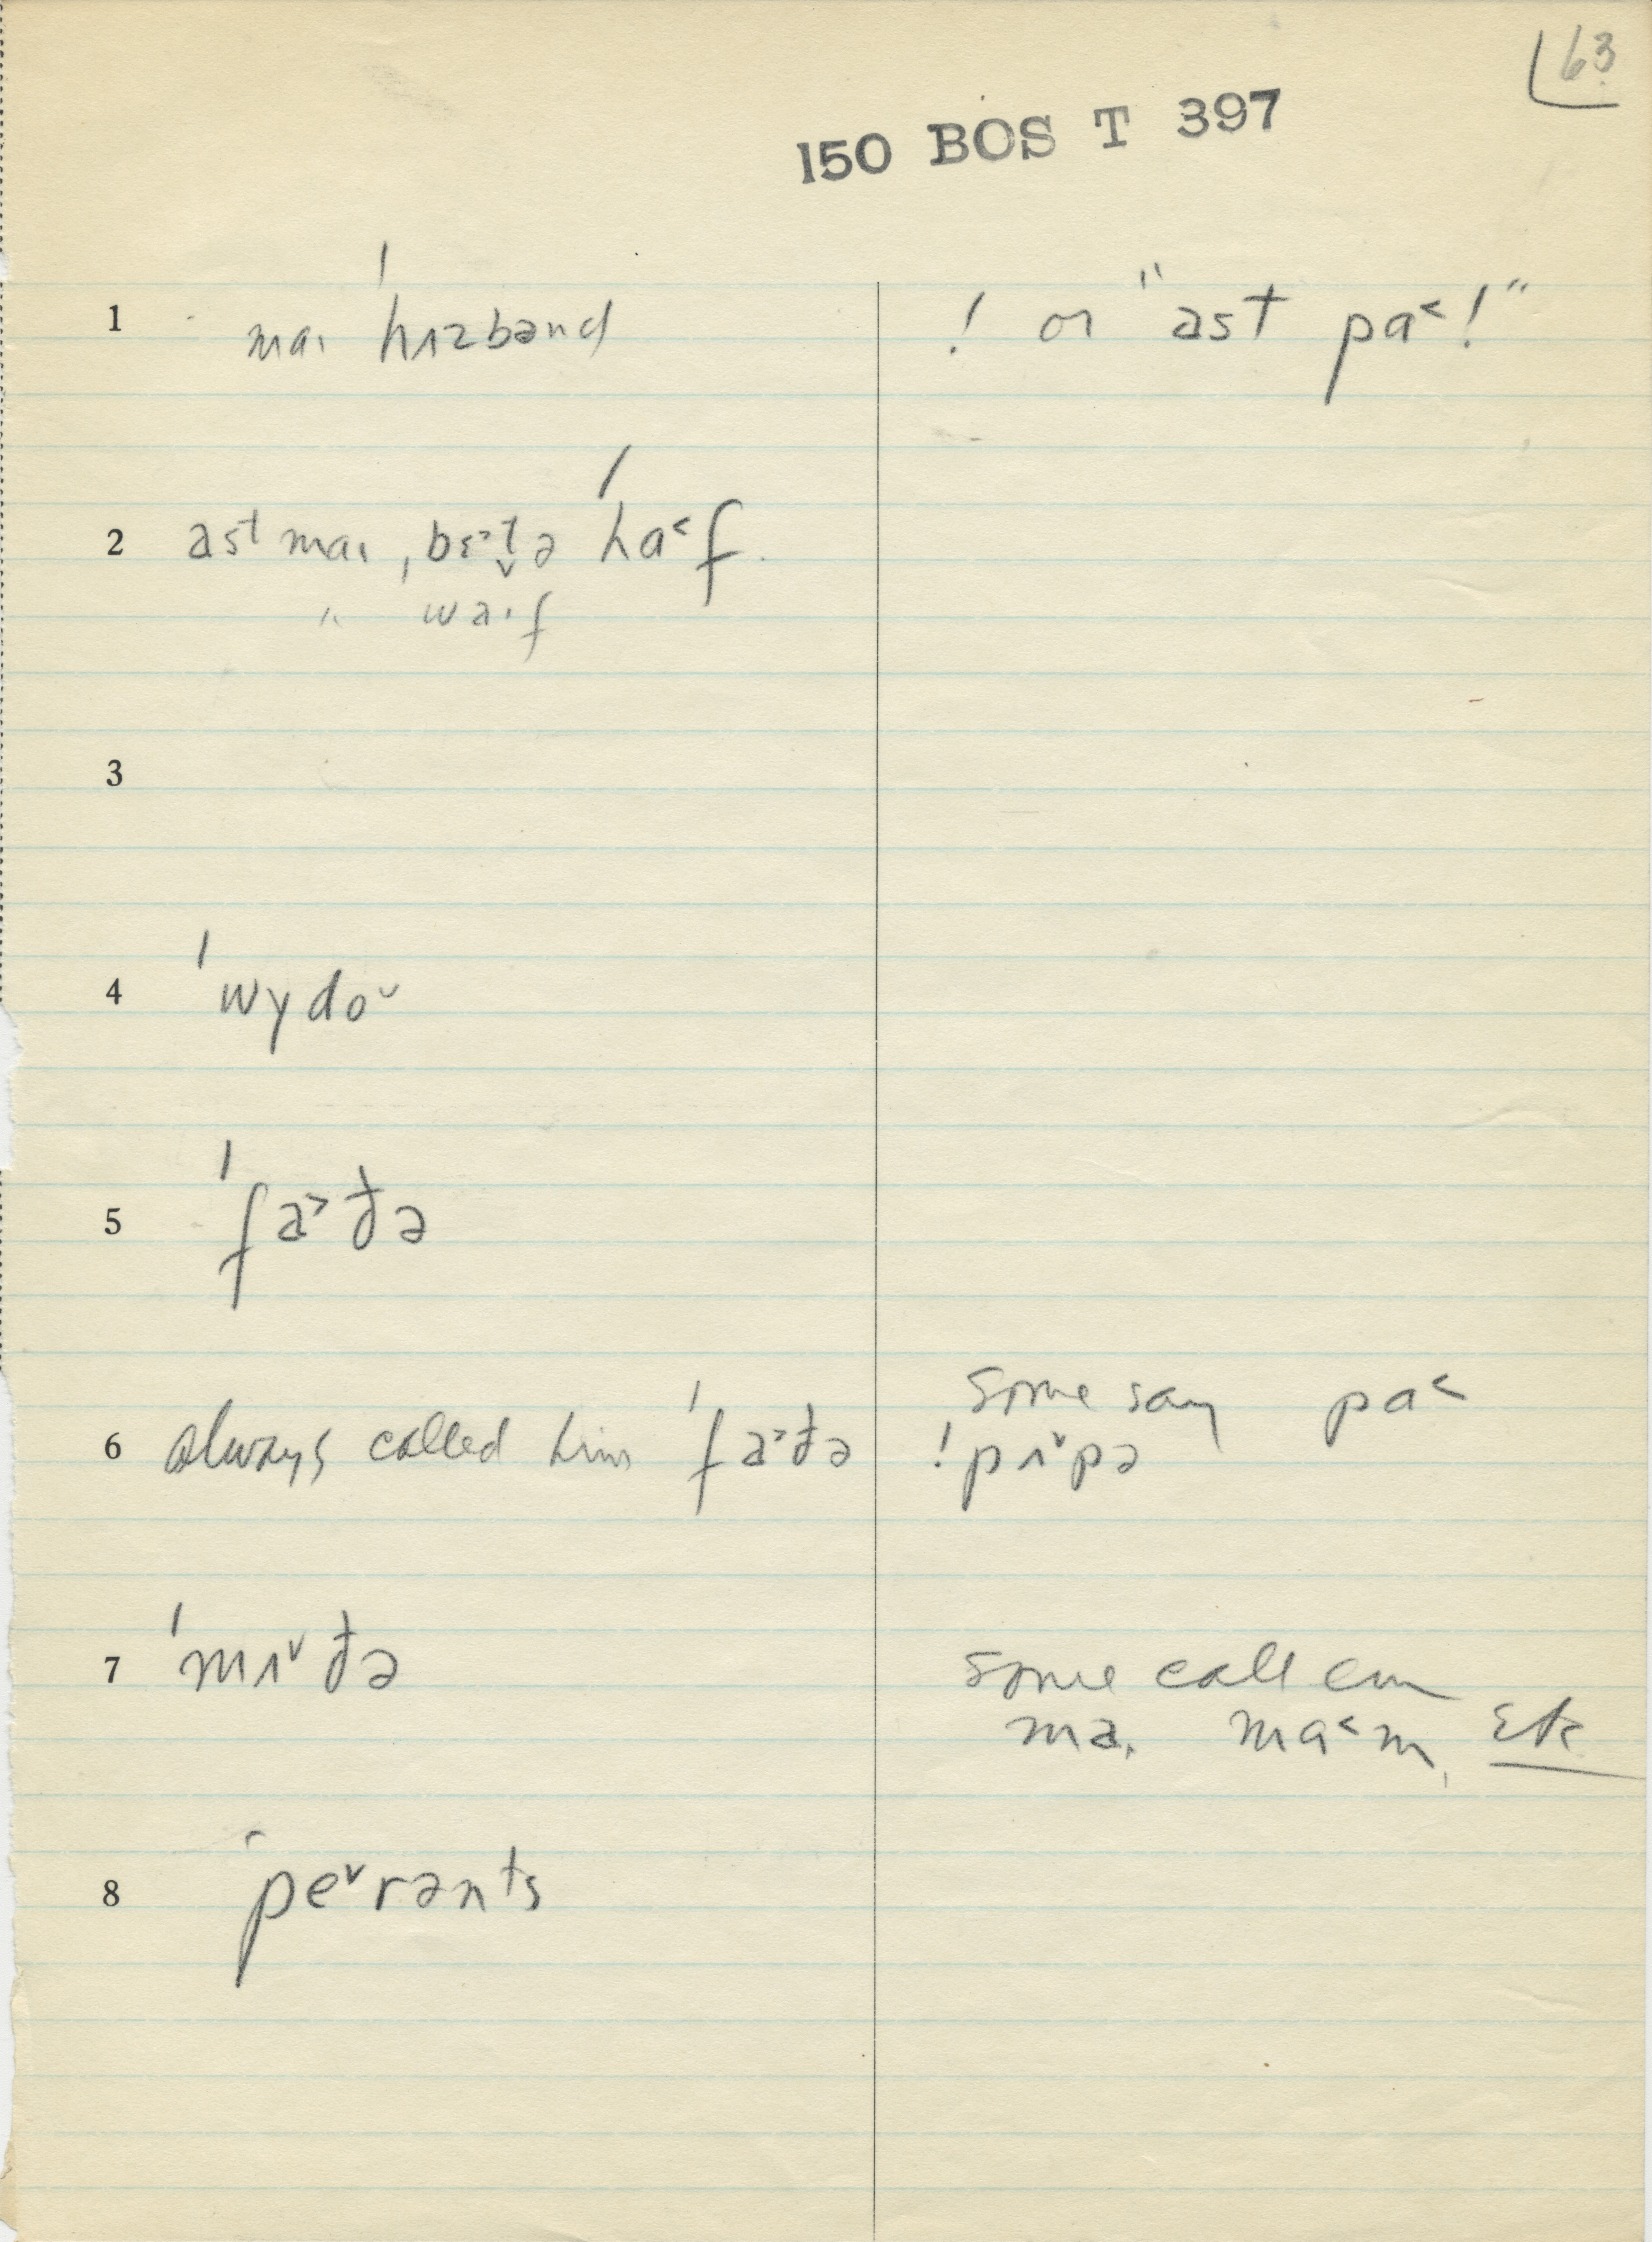 63
150 BOS T 397
1 maɪ ˈhɪzbənd ! or "ast pa˂!"
2 ast maɪ ˌbɛ˃t̬ə ˈha˂f
" waɪf
3
4 ˈwydo˅
5 ˈfa˃ðə
6 always called him ˈfa˃ðə some say pa˂
! pʌ˅pə
7 ˈmʌ˅ðə some call em
ma, ma˂m, etc
8 ˈpe˅rənts